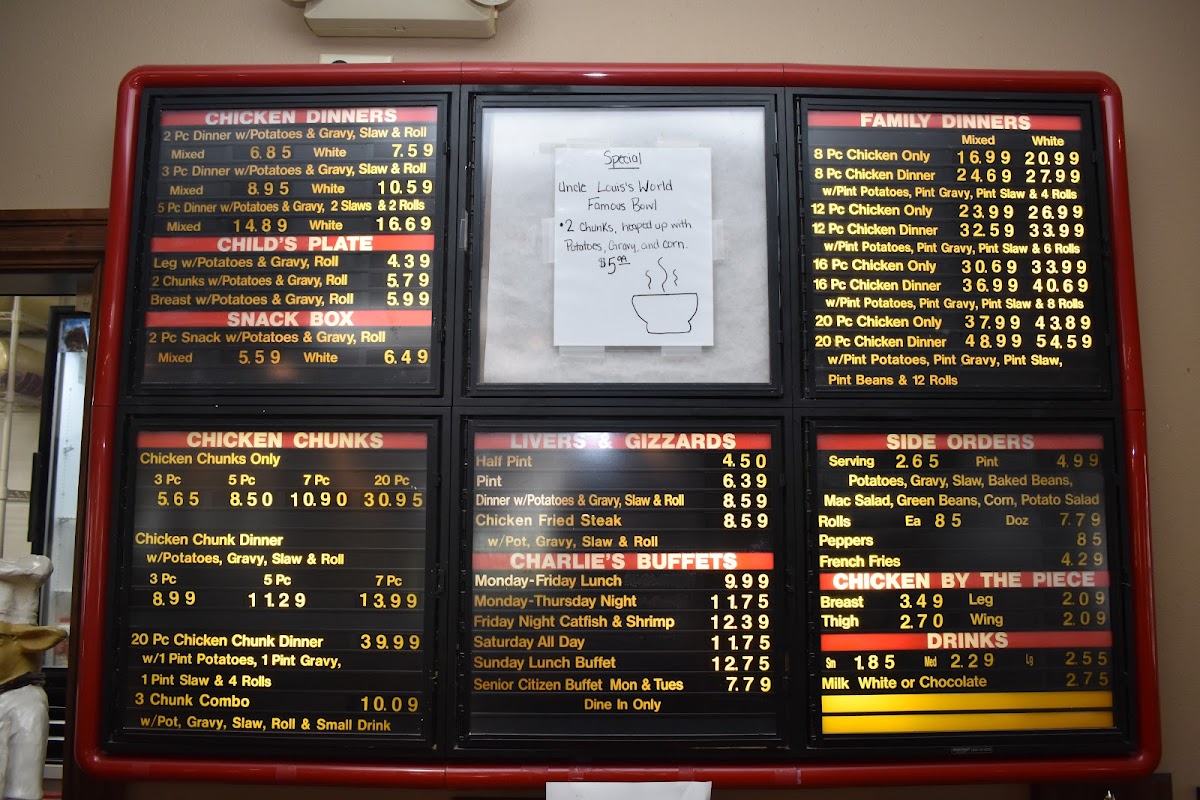 CHICKEN DINNERS
2 Pc Dinner w/Potatoes & Gravy, Slaw & Roll
Mixed 6.85 White 7.59
3 Pc Dinner w/Potatoes & Gravy, Slaw & Roll
Mixed 8.95 White 10.59
5 Pc Dinner w/Potatoes & Gravy, 2 Slaws & 2 Rolls
Mixed 14.89 White 16.69
CHILD'S PLATE
Leg w/Potatoes & Gravy, Roll 4.39
2 Chunks w/Potatoes & Gravy, Roll 5.79
Breast w/Potatoes & Gravy, Roll 5.99
SNACK BOX
2 Pc Snack w/Potatoes & Gravy, Roll
Mixed 5.59 White 6.49
Special
Uncle Louis's World
Famous Bowl
•2 Chunks, heaped up with
Potatoes, Gravy, and corn.
$5.99
FAMILY DINNERS
Mixed White
8 Pc Chicken Only 16.99 20.99
8 Pc Chicken Dinner 24.69 27.99
w/Pint Potatoes, Pint Gravy, Pint Slaw & 4 Rolls
12 Pc Chicken Only 23.99 26.99
12 Pc Chicken Dinner 32.59 33.99
w/Pint Potatoes, Pint Gravy, Pint Slaw & 6 Rolls
16 Pc Chicken Only 30.69 33.99
16 Pc Chicken Dinner 36.99 40.69
w/Pint Potatoes, Pint Gravy, Pint Slaw & 8 Rolls
20 Pc Chicken Only 37.99 43.89
20 Pc Chicken Dinner 48.99 54.59
w/Pint Potatoes, Pint Gravy, Pint Slaw,
Pint Beans & 12 Rolls
CHICKEN CHUNKS
Chicken Chunks Only
3 Pc 5 Pc 7 Pc 20 Pc
5.65 8.50 10.90 30.95
Chicken Chunk Dinner
w/Potatoes, Gravy, Slaw & Roll
3 Pc 5 Pc 7 Pc
8.99 11.29 13.99
20 Pc Chicken Chunk Dinner 39.99
w/1 Pint Potatoes, 1 Pint Gravy,
1 Pint Slaw & 4 Rolls
3 Chunk Combo 10.09
w/Pot, Gravy, Slaw, Roll & Small Drink
LIVERS & GIZZARDS
Half Pint 4.50
Pint 6.39
Dinner w/Potatoes & Gravy, Slaw & Roll 8.59
Chicken Fried Steak 8.59
w/Pot, Gravy, Slaw & Roll
CHARLIE'S BUFFETS
Monday-Friday Lunch 9.99
Monday-Thursday Night 11.75
Friday Night Catfish & Shrimp 12.39
Saturday All Day 11.75
Sunday Lunch Buffet 12.75
Senior Citizen Buffet Mon & Tues 7.79
Dine In Only
SIDE ORDERS
Serving 2.65 Pint 4.99
Potatoes, Gravy, Slaw, Baked Beans,
Mac Salad, Green Beans, Corn, Potato Salad
Rolls Ea 85 Doz 7.79
Peppers 85
French Fries 4.29
CHICKEN BY THE PIECE
Breast 3.49 Leg 2.09
Thigh 2.70 Wing 2.09
DRINKS
Sm 1.85 Med 2.29 Lg 2.55
Milk White or Chocolate 2.75